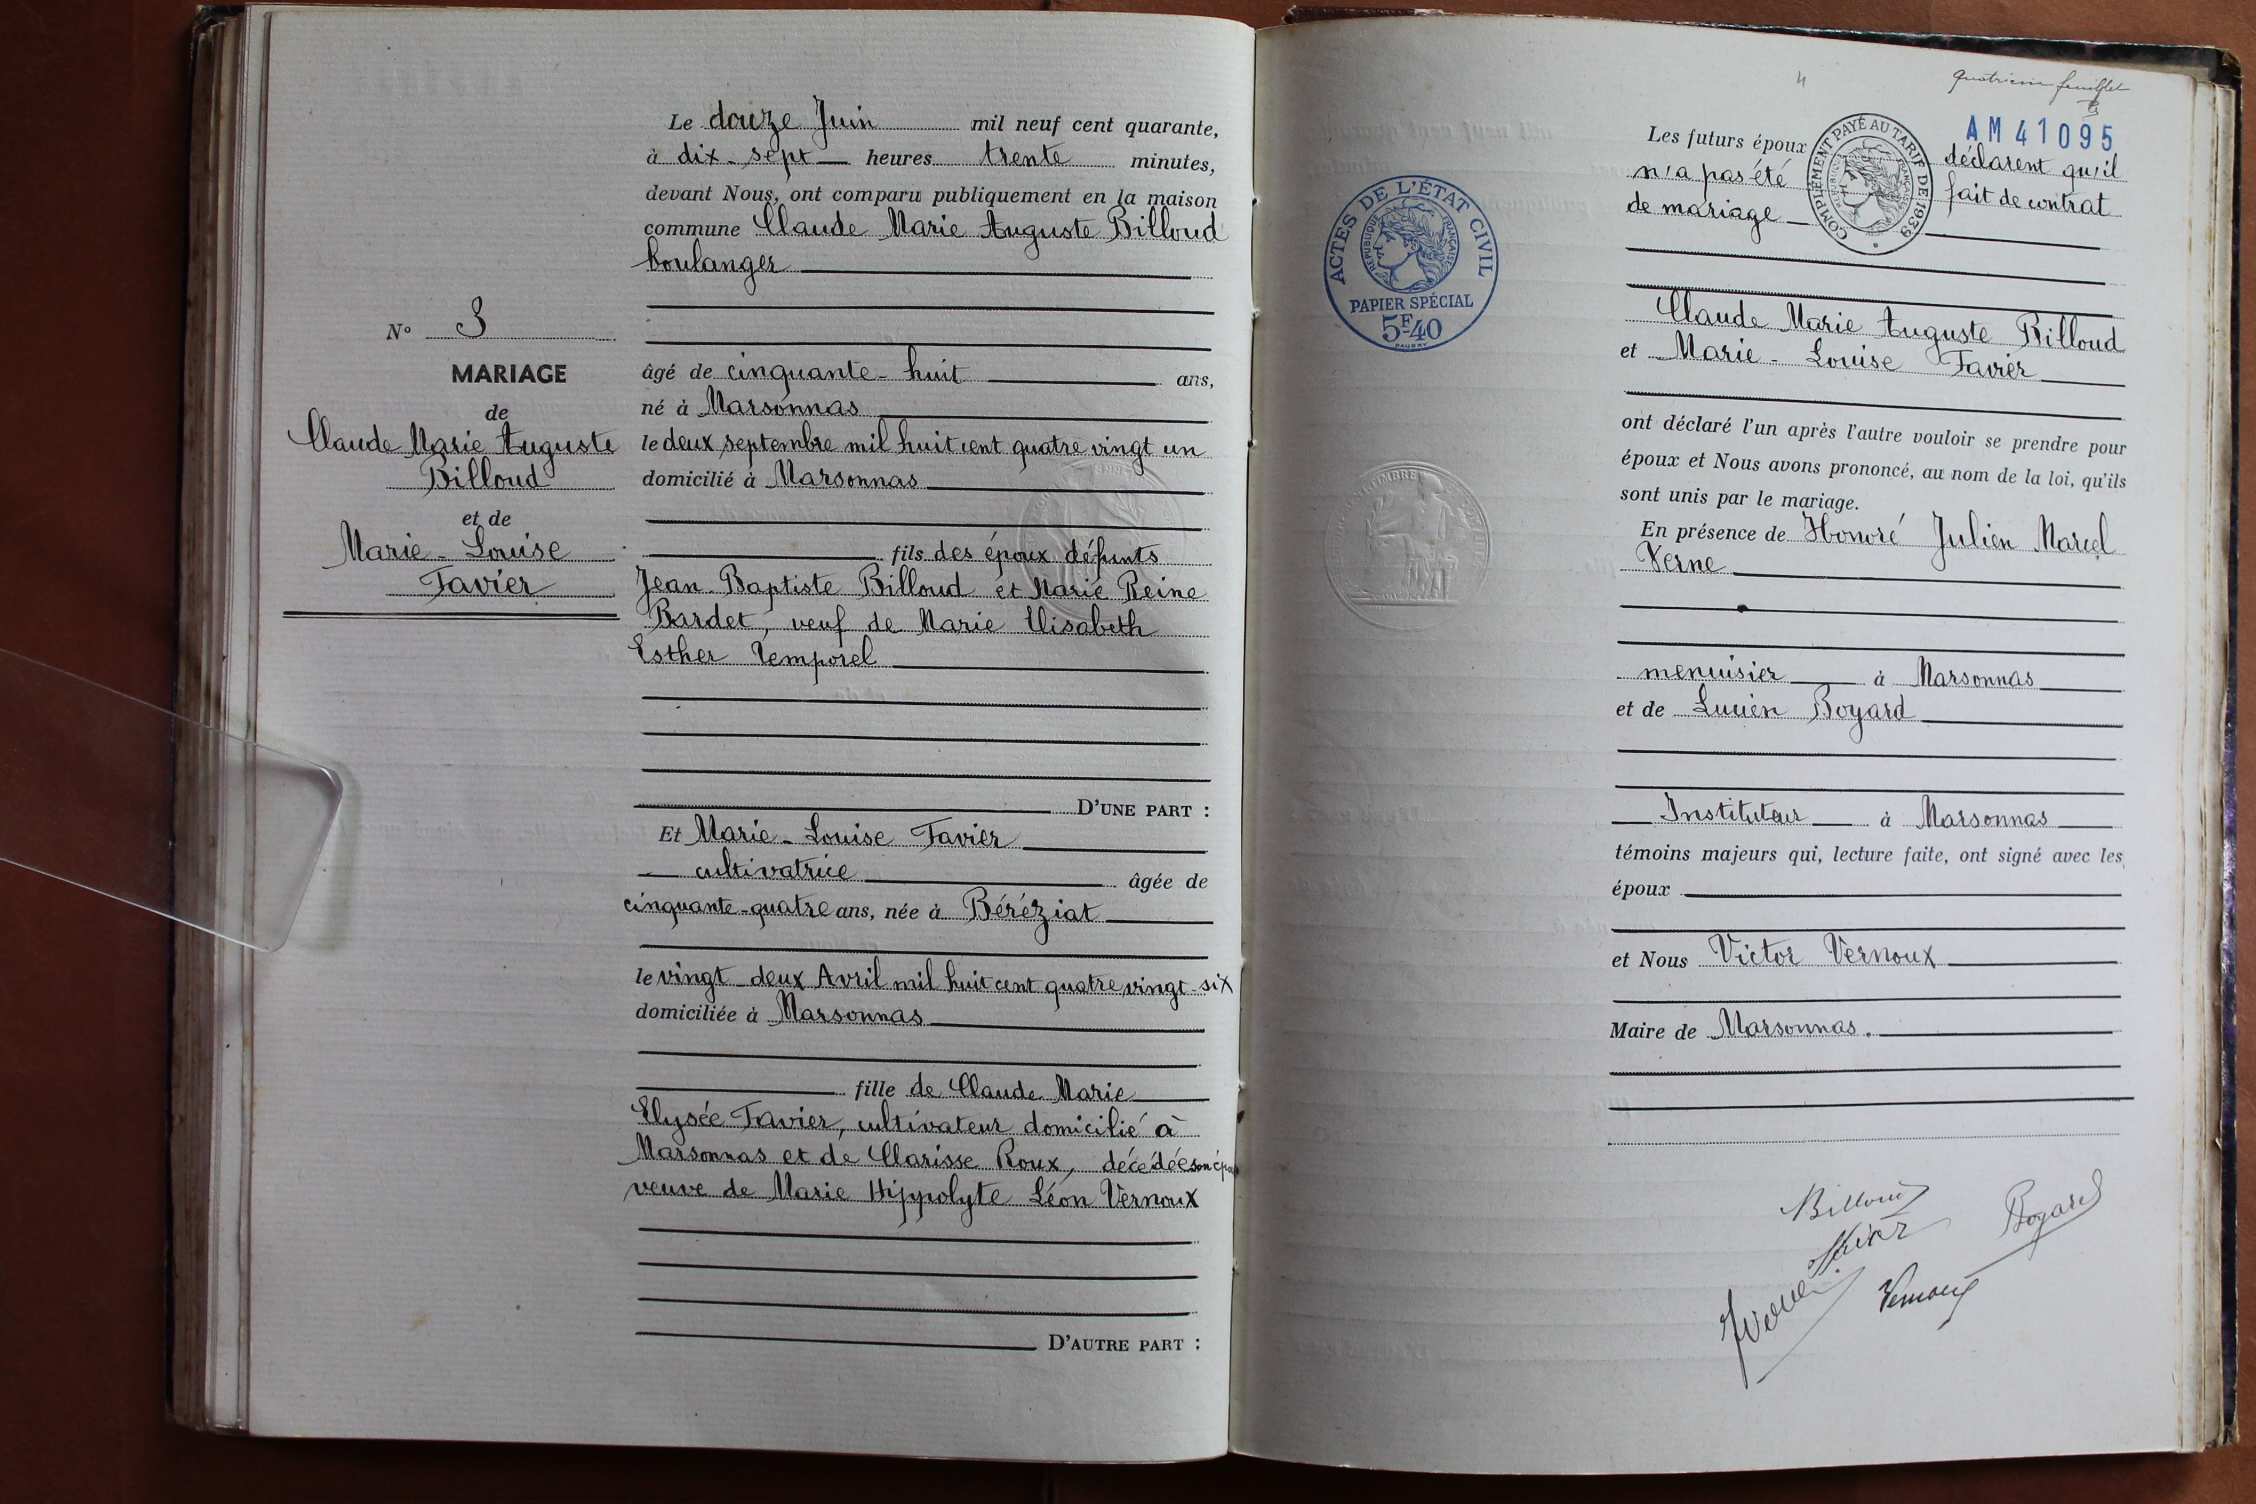 N° 3
MARIAGE
de
Claude Marie Auguste
Billoud
et de
Marie-Louise
Favier
Le douze Juin mil neuf cent quarante,
à dix-sept heures trente minutes,
devant Nous, ont comparu publiquement en la maison
commune Claude Marie Auguste Billoud
boulanger
âgé de cinquante-huit ans,
né à Marsonnas
le deux septembre mil huit cent quatre vingt un
domicilié à Marsonnas
fils des époux défunts
Jean-Baptiste Billoud et Marie Reine
Bardet, veuf de Marie Elisabeth
Esther Temporel
D'UNE PART :
Et Marie-Louise Favier
cultivatrice âgée de
cinquante-quatre ans, née à Béréziat
le vingt-deux Avril mil huit cent quatre vingt-six
domiciliée à Marsonnas
fille de Claude Marie
Elysée Favier, cultivateur domicilié à
Marsonnas et de Clarisse Roux, décédée son
veuve de Marie Hippolyte Léon Vernoux
D'AUTRE PART :
4
quatrième feuillet
AM41095
COMPLÉMENT PAYÉ AU TARIF DE 1939
RÉPUBLIQUE FRANÇAISE
ACTES DE L'ÉTAT CIVIL
RÉPUBLIQUE FRANÇAISE
PAPIER SPÉCIAL
5F40
Les futurs époux déclarent qu'il
n'a pas été fait de contrat
de mariage
Claude Marie Auguste Billoud
et Marie-Louise Favier
ont déclaré l'un après l'autre vouloir se prendre pour
époux et Nous avons prononcé, au nom de la loi, qu'ils
sont unis par le mariage.
En présence de Honoré Julien Marcel
Verne
menuisier à Marsonnas
et de Lucien Boyard
Instituteur à Marsonnas
témoins majeurs qui, lecture faite, ont signé avec les
époux
et Nous Victor Vernoux
Maire de Marsonnas.
Billoud
Boyard
Vernoux